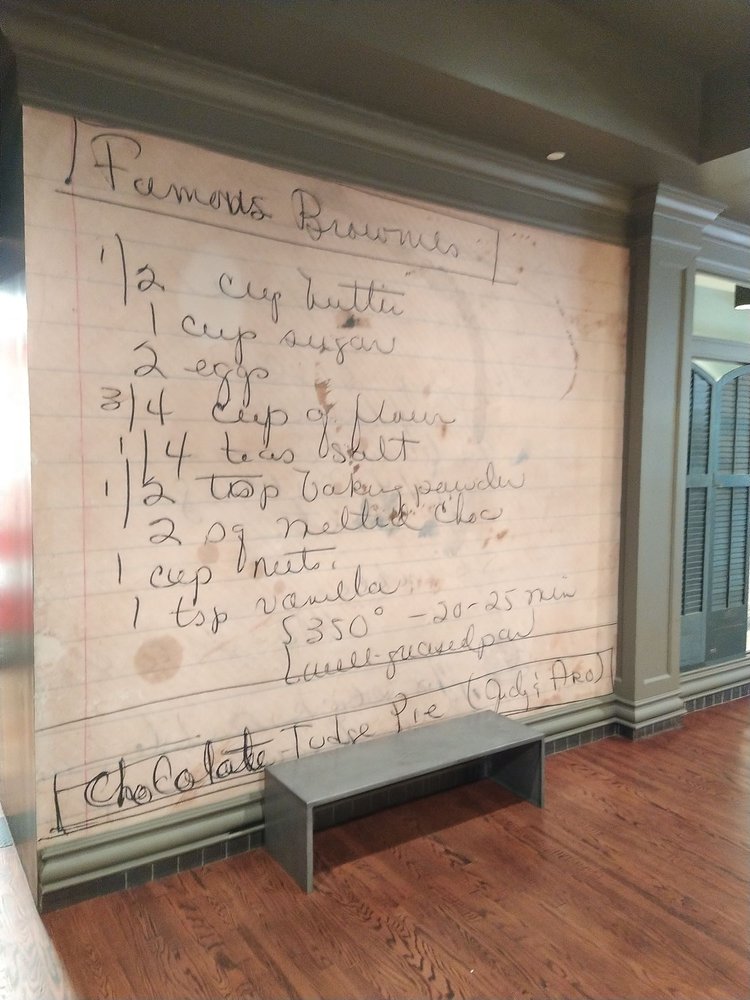 Famous Brownies
1/2 cup butter
1 cup sugar
2 eggs
3/4 cup of flour
1/4 teas salt
1/2 tsp baking powder
2 sq melted choc
1 cup nuts.
1 tsp vanilla
350° - 20-25 min
well-greased pan
Chocolate Fudge Pie (Judy's Aro)